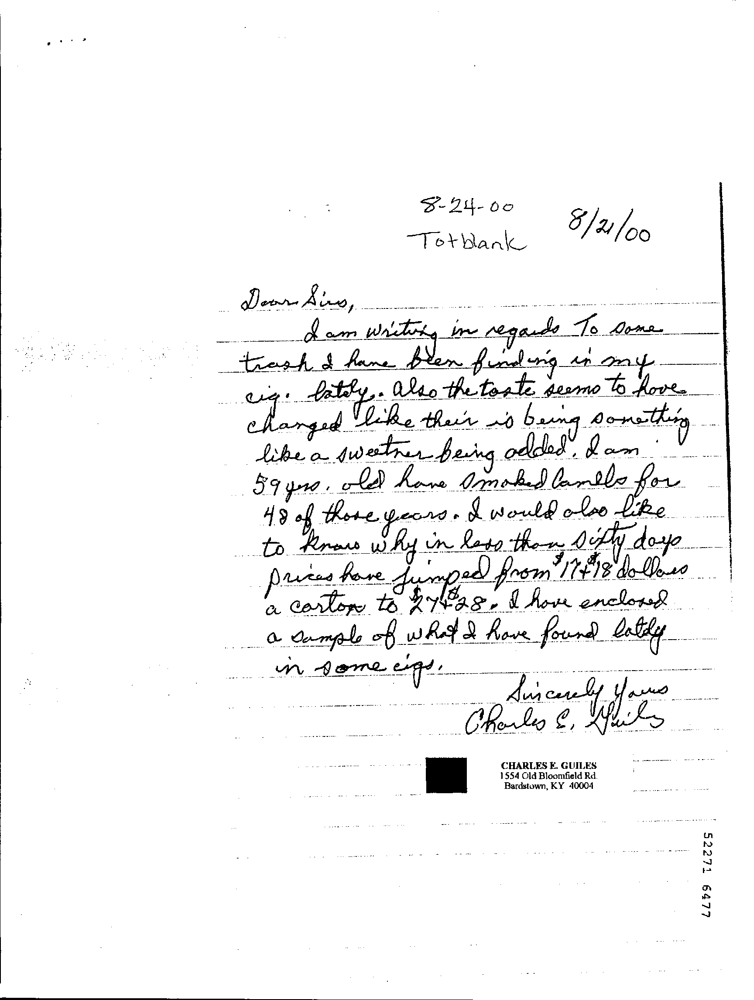 8-24-00
Totblank
8/21/00
Dear Sirs,
I am writing in regards To some
trash I have been finding in my
cig. lately. Also the taste seems to have
changed like their is being something
like a sweetner being added. I am
59 yrs. old have smoked Camels for
48 of those years. I would also like
to know why in less than sixty days
prices have jumped from $17+$18 dollars
a carton to $27+$28. I have enclosed
a sample of what I have found lately
in some cigs.
Sincerely yours
Charles E. Guiles
CHARLES E. GUILES
1554 Old Bloomfield Rd.
Bardstown, KY 40004
52271 6477